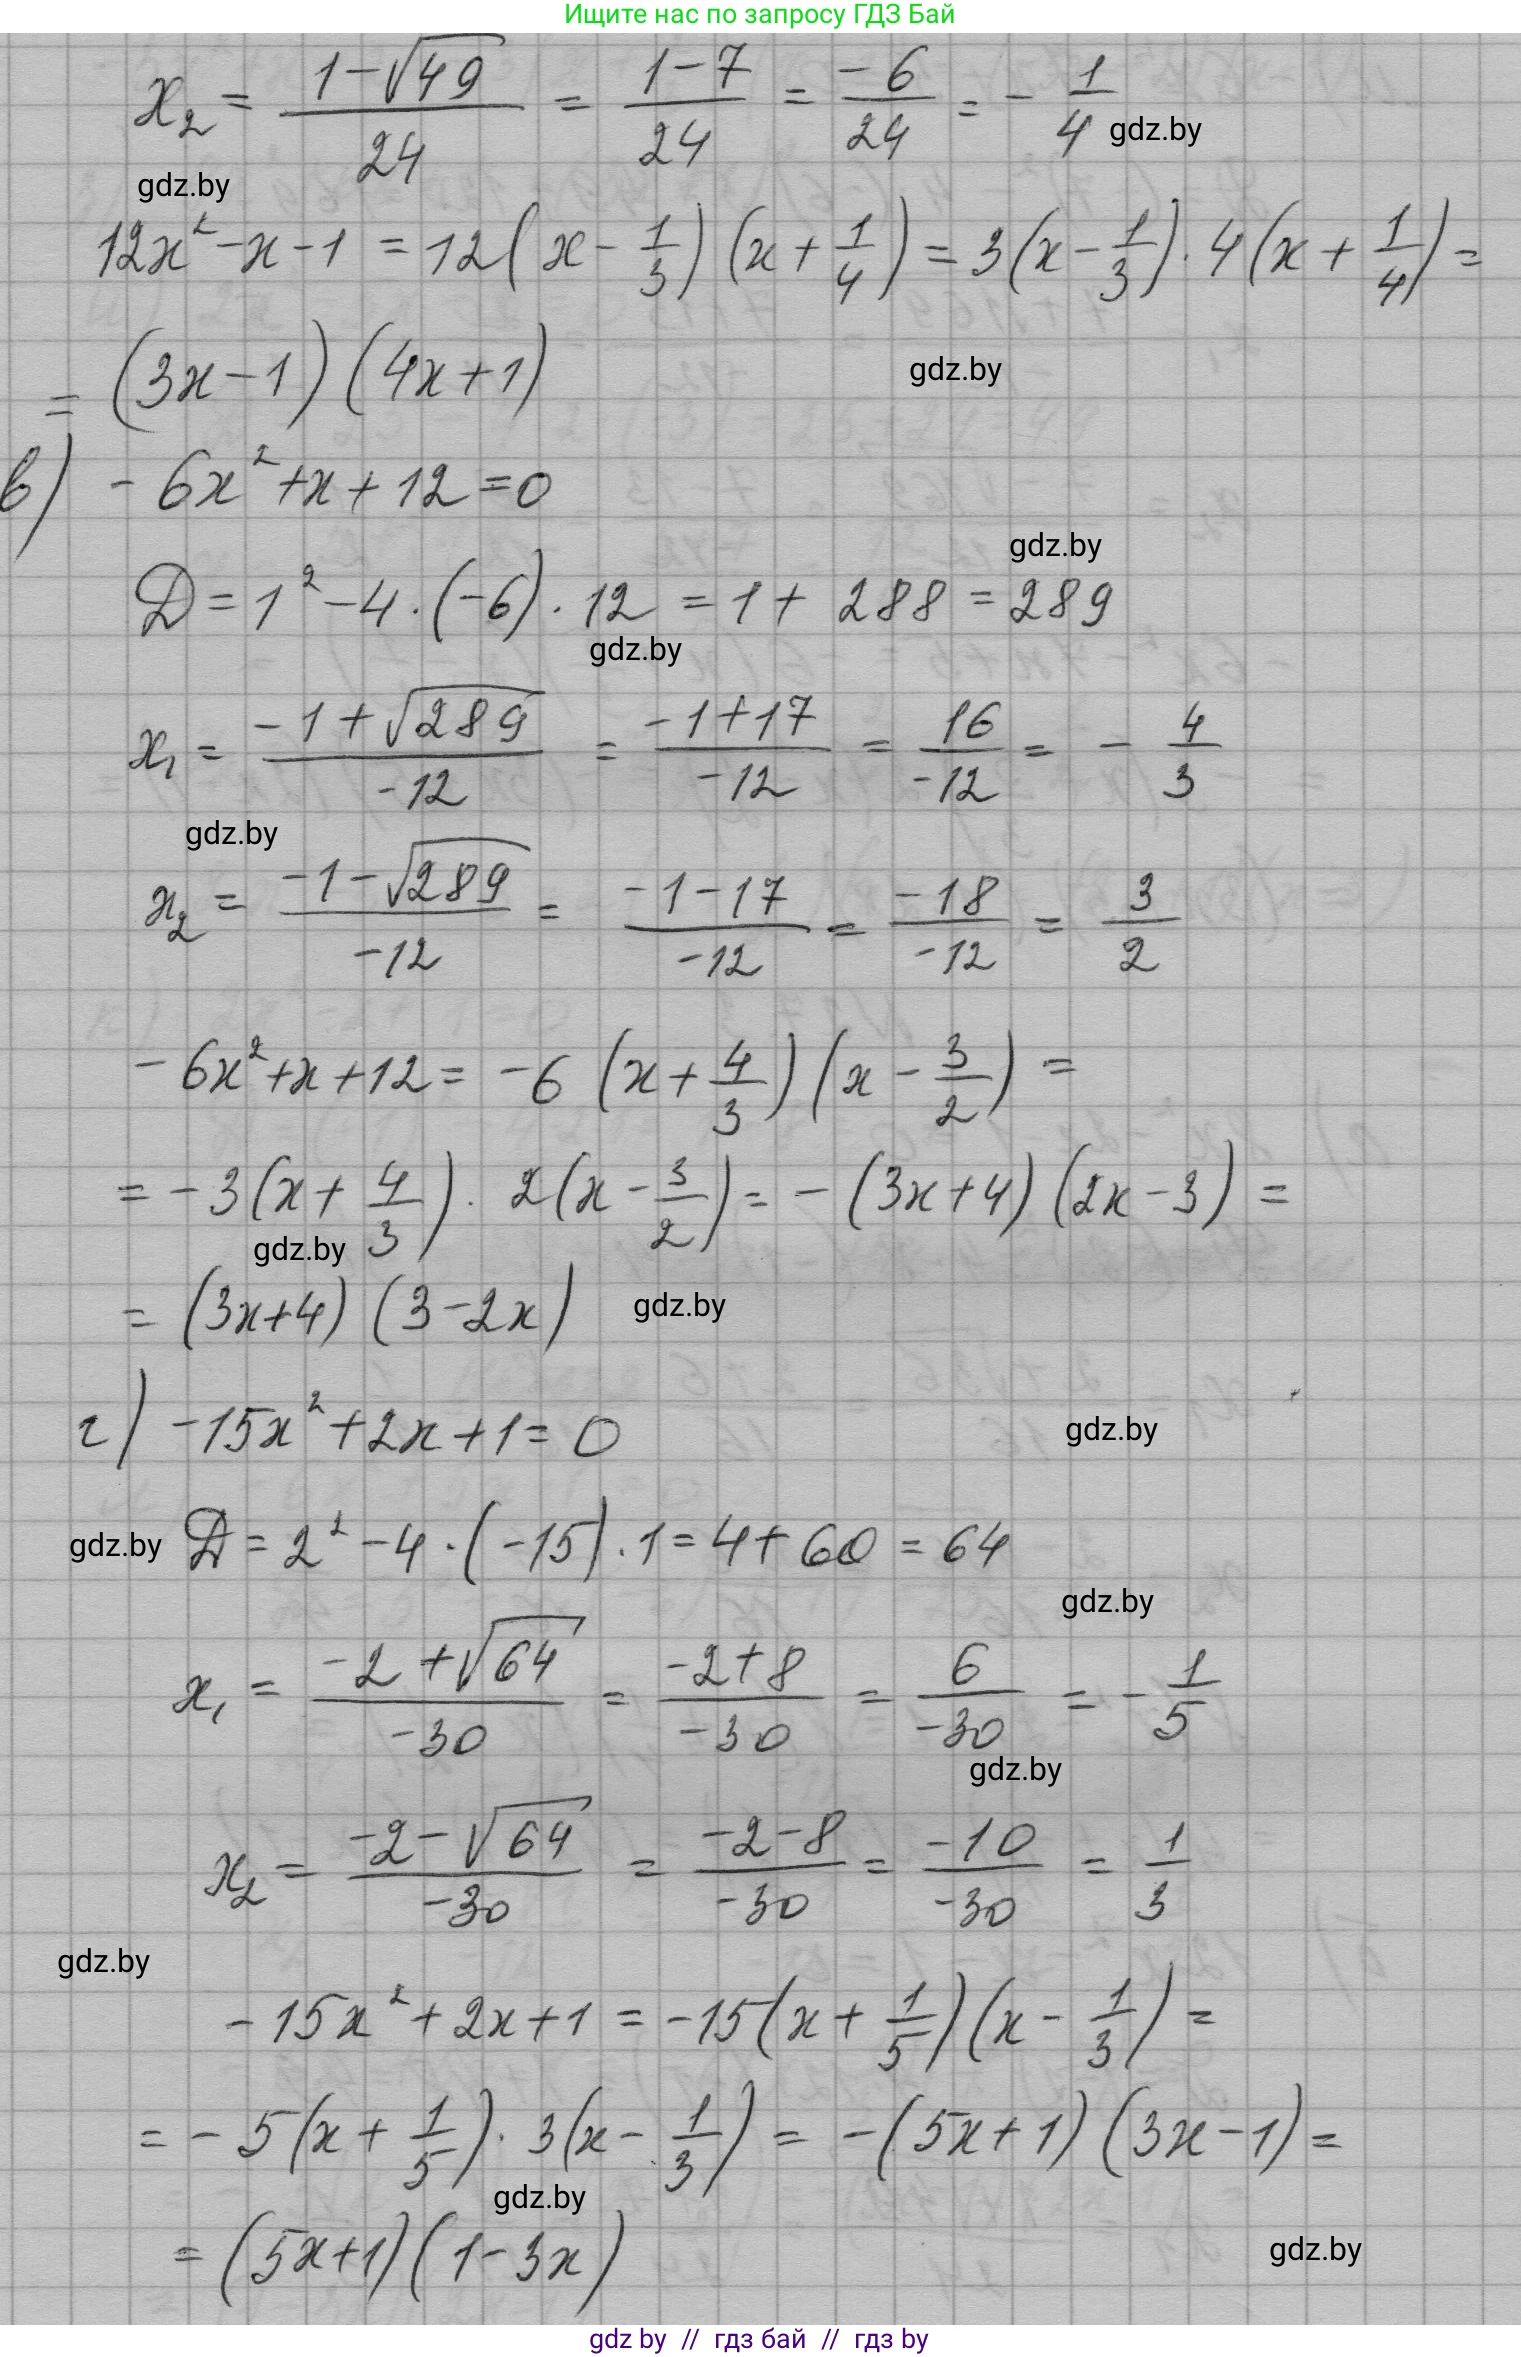 Ищите нас по запросу ГДЗ Бай
x₂ = (1-√49)/24 = (1-7)/24 = -6/24 = -1/4 gdz.by
gdz.by
12x²-x-1 = 12(x-1/3)(x+1/4) = 3(x-1/3)·4(x+1/4) =
= (3x-1)(4x+1) gdz.by
в) -6x²+x+12=0
gdz.by
D = 1²-4·(-6)·12 = 1+288 = 289
gdz.by
x₁ = (-1+√289)/-12 = (-1+17)/-12 = 16/-12 = -4/3
gdz.by
x₂ = (-1-√289)/-12 = (-1-17)/-12 = -18/-12 = 3/2
-6x²+x+12 = -6(x+4/3)(x-3/2) =
= -3(x+4/3)·2(x-3/2) = -(3x+4)(2x-3) =
gdz.by
= (3x+4)(3-2x) gdz.by
г) -15x²+2x+1=0 gdz.by
gdz.by D = 2²-4·(-15)·1 = 4+60 = 64
gdz.by
x₁ = (-2+√64)/-30 = (-2+8)/-30 = 6/-30 = -1/5
gdz.by
x₂ = (-2-√64)/-30 = (-2-8)/-30 = -10/-30 = 1/3
gdz.by
-15x²+2x+1 = -15(x+1/5)(x-1/3) =
= -5(x+1/5)·3(x-1/3) = -(5x+1)(3x-1) =
gdz.by
= (5x+1)(1-3x) gdz.by
gdz by // гдз бай // гдз by